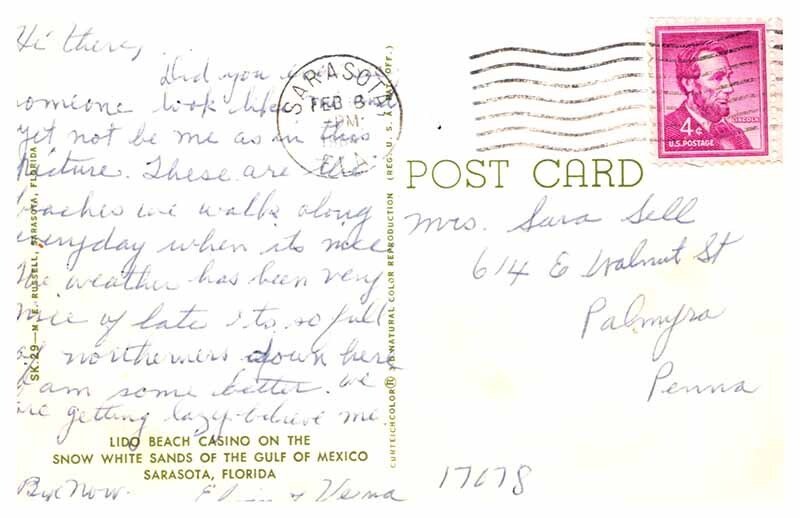 Hi there,
Did you ever see
someone look like me and
yet not be me as in this
picture. These are the
beaches we walk along
everyday when its nice
the weather has been very
nice of late & to, so full
of northerners down here
I am some better. we
are getting lazy-believe me
LIDO BEACH CASINO ON THE
SNOW WHITE SANDS OF THE GULF OF MEXICO
SARASOTA, FLORIDA
Bye Now. & Verna
SK.29—M. E. RUSSELL, SARASOTA, FLORIDA
SARASOTA
FEB 8
PM
FLA.
CURTEICHCOLOR® 3-D NATURAL COLOR REPRODUCTION (REG. U.S.A. PAT. OFF.)
LINCOLN
4¢
U.S. POSTAGE
POST CARD
Mrs. Sara Sell
614 E Walnut St
Palmyra
Penna
17078